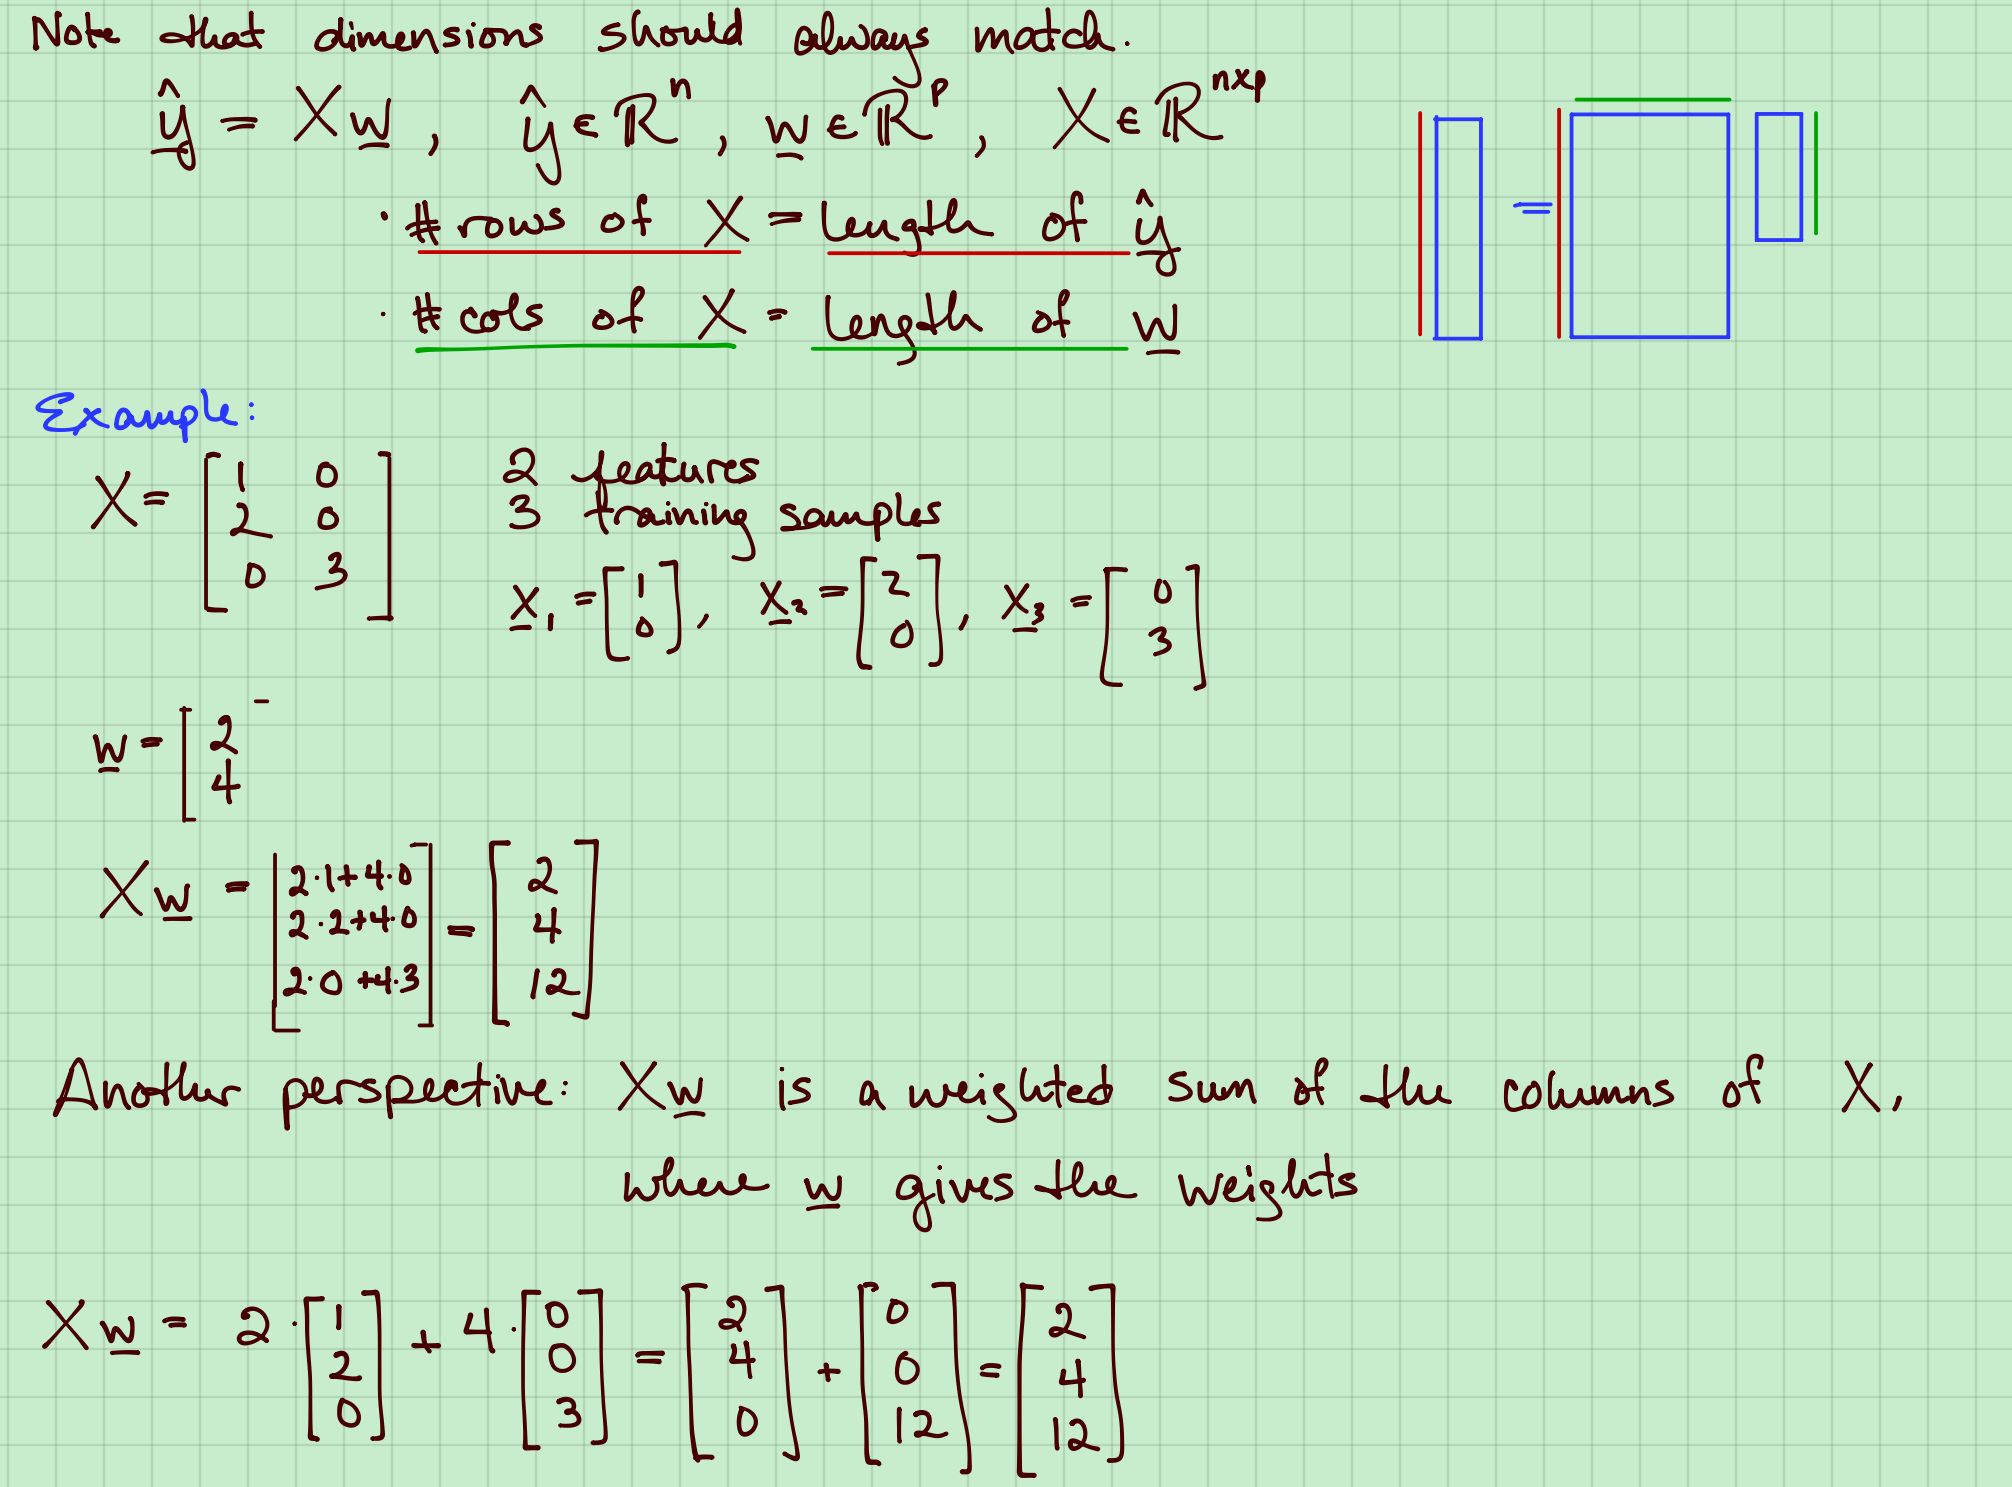 Note that dimensions should always match.
ŷ = Xw, ŷ ∈ ℝⁿ, w ∈ ℝᵖ, X ∈ ℝⁿˣᵖ
· # rows of X = length of ŷ
· # cols of X = length of w
=
Example:
X = [1 0; 2 0; 0 3]
2 features
3 training samples
x₁ = [1; 0], x₂ = [2; 0], x₃ = [0; 3]
w = [2; 4]
Xw = [2·1+4·0; 2·2+4·0; 2·0+4·3] = [2; 4; 12]
Another perspective: Xw is a weighted sum of the columns of X,
where w gives the weights
Xw = 2·[1; 2; 0] + 4·[0; 0; 3] = [2; 4; 0] + [0; 0; 12] = [2; 4; 12]